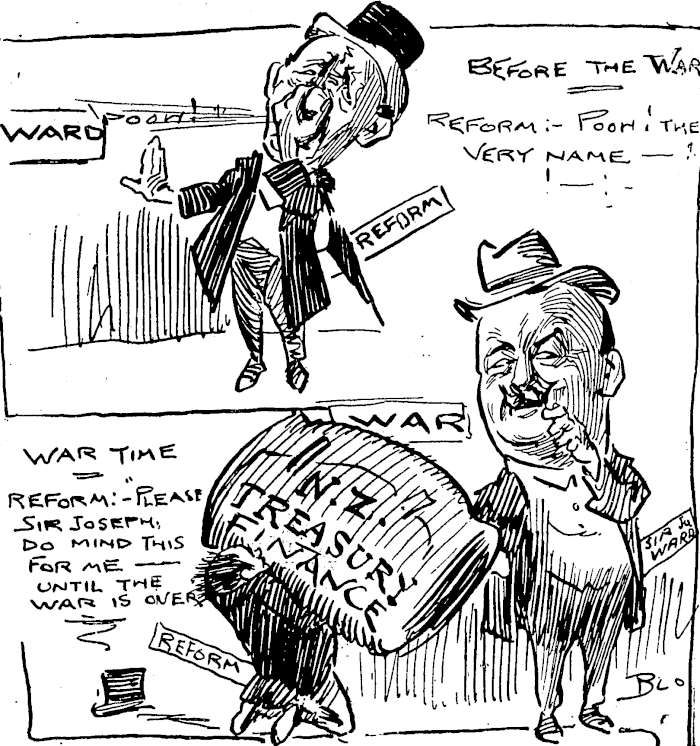 BEFORE THE WAR
REFORM:- POOH! THE
VERY NAME — !
! — ! -
WARD
POOH!!
REFORM
WAR
WAR TIME
REFORM:- "PLEASE
SIR JOSEPH,
DO MIND THIS
FOR ME —
UNTIL THE
WAR IS OVER
N.Z.
TREASURY
FINANCE
SIR JO
WARD
REFORM
BLO